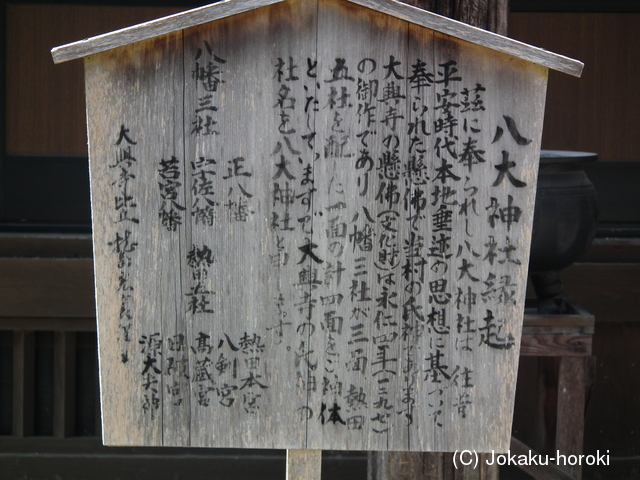 八大神社縁起
茲に奉られし八大神社は 往昔
平安時代本地垂迹の思想に基づいて
奉られた懸佛で当村の氏神であります
大興寺の懸佛(文化財)は永仁四年(一二九六)
の御作であり八幡三社が三面 熱田
五社を配した一面の計四面をご神体
といたしていますので大興寺の氏神の
社名を八大神社と申します。
八幡三社 正八幡
宇佐八幡
若宮八幡
熱田五社 熱田本宮
八剣宮
高蔵宮
日割宮
源大夫神
大興寺
(C) Jokaku-horoki